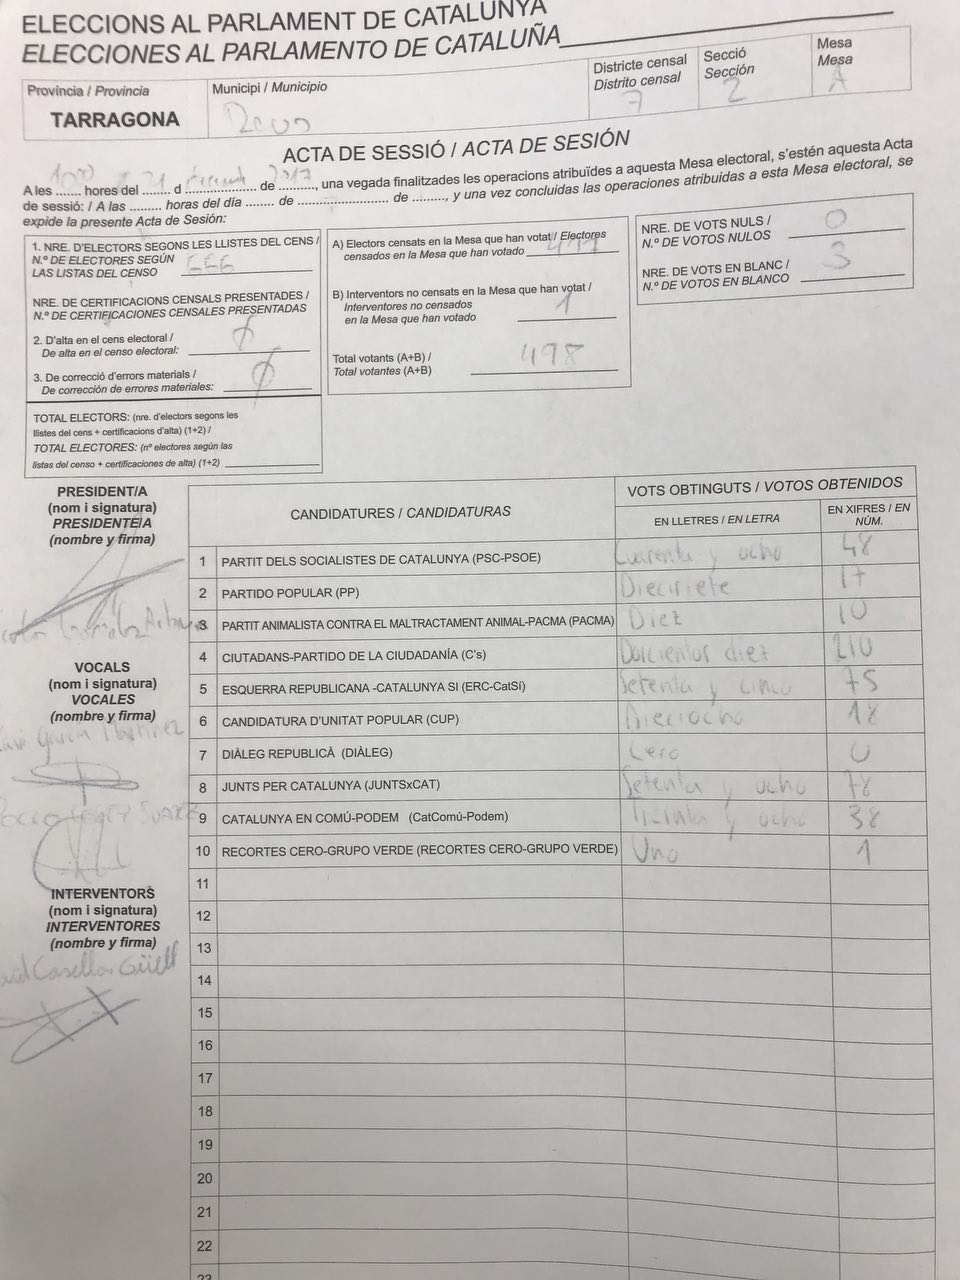 ELECCIONS AL PARLAMENT DE CATALUNYA
ELECCIONES AL PARLAMENTO DE CATALUÑA
Provincia / Provincia
TARRAGONA
Municipi / Municipio
Reus
Districte censal
Distrito censal
7
Secció
Sección
2
Mesa
Mesa
A
ACTA DE SESSIÓ / ACTA DE SESIÓN
A les ....... hores del ....... d ................... de .........., una vegada finalitzades les operacions atribuïdes a aquesta Mesa electoral, s'estén aquesta Acta
21 2017
de sessió: / A las ......... horas del día ....... de ........................ de ........., y una vez concluidas las operaciones atribuidas a esta Mesa electoral, se
expide la presente Acta de Sesión:
1. NRE. D'ELECTORS SEGONS LES LLISTES DEL CENS /
N.º DE ELECTORES SEGÚN
LAS LISTAS DEL CENSO
NRE. DE CERTIFICACIONS CENSALS PRESENTADES /
N.º DE CERTIFICACIONES CENSALES PRESENTADAS
2. D'alta en el cens electoral /
De alta en el censo electoral: Ø
3. De correcció d'errors materials /
De corrección de errores materiales: Ø
TOTAL ELECTORS: (nre. d'electors segons les
llistes del cens + certificacions d'alta) (1+2) /
TOTAL ELECTORES: (nº electores según las
listas del censo + certificaciones de alta) (1+2)
A) Electors censats en la Mesa que han votat / Electores
censados en la Mesa que han votado 497
B) Interventors no censats en la Mesa que han votat /
Interventores no censados
en la Mesa que han votado 1
Total votants (A+B) /
Total votantes (A+B) 498
NRE. DE VOTS NULS /
N.º DE VOTOS NULOS 0
NRE. DE VOTS EN BLANC /
N.º DE VOTOS EN BLANCO 3
PRESIDENT/A
(nom i signatura)
PRESIDENTE/A
(nombre y firma)
VOCALS
(nom i signatura)
VOCALES
(nombre y firma)
García Martínez
INTERVENTORS
(nom i signatura)
INTERVENTORES
(nombre y firma)
Casellas Güell
CANDIDATURES / CANDIDATURAS
VOTS OBTINGUTS / VOTOS OBTENIDOS
EN LLETRES / EN LETRA
EN XIFRES / EN NÚM.
1 PARTIT DELS SOCIALISTES DE CATALUNYA (PSC-PSOE) Cuarenta y ocho 48
2 PARTIDO POPULAR (PP) Diecisiete 17
3 PARTIT ANIMALISTA CONTRA EL MALTRACTAMENT ANIMAL-PACMA (PACMA) Diez 10
4 CIUTADANS-PARTIDO DE LA CIUDADANÍA (C's) Doscientos diez 210
5 ESQUERRA REPUBLICANA -CATALUNYA SI (ERC-CatSí) Setenta y cinco 75
6 CANDIDATURA D'UNITAT POPULAR (CUP) Dieciocho 18
7 DIÀLEG REPUBLICÀ (DIÀLEG) Cero 0
8 JUNTS PER CATALUNYA (JUNTSxCAT) Setenta y ocho 78
9 CATALUNYA EN COMÚ-PODEM (CatComú-Podem) Treinta y ocho 38
10 RECORTES CERO-GRUPO VERDE (RECORTES CERO-GRUPO VERDE) Uno 1
11
12
13
14
15
16
17
18
19
20
21
22
23